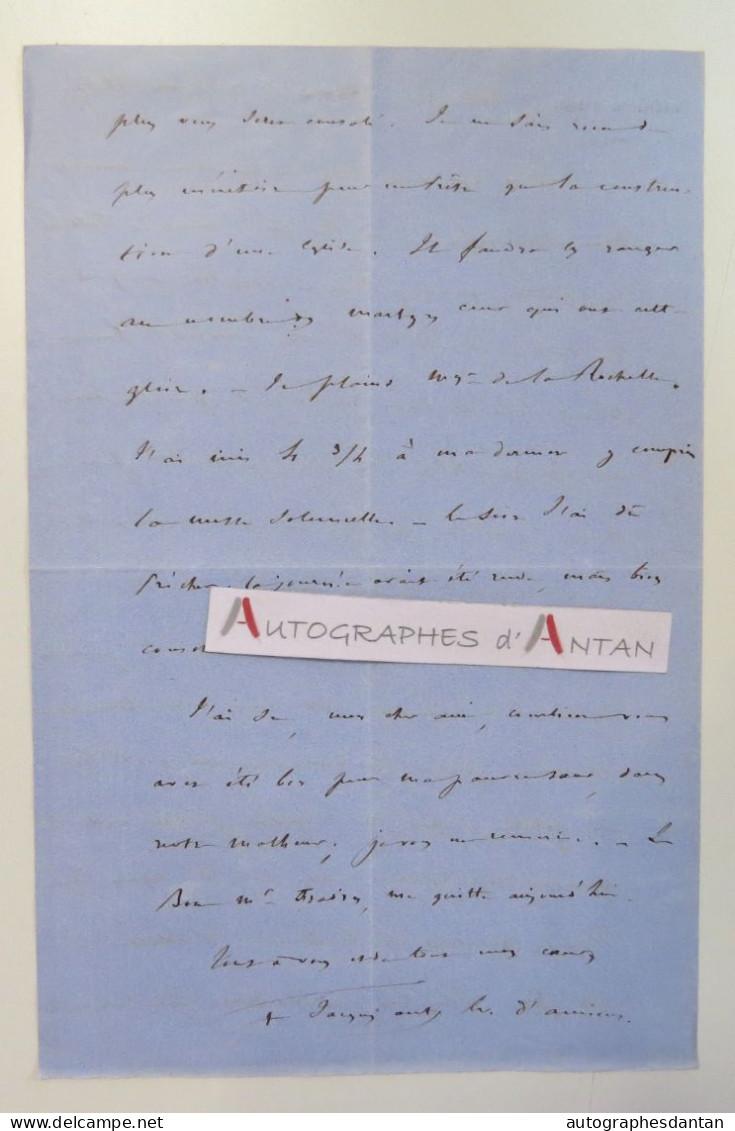 plus vous serez consolé. Je ne sais rien de
plus méritoire pour un prêtre que la construc-
tion d'une Église. Il faudra les ranger
au nombre des martyrs ceux qui ont
Je plains Mgr de la Rochelle.
J'ai mis 4 3/4 à y compris
la messe solennelle. – le soir J'ai dû
prêcher. La journée avait été rude, mais bien
AUTOGRAPHES d'ANTAN
J'ai su, mon cher ami, combien vous
avez été bon pour ma pauvre sœur, dans
notre malheur, je vous en remercie. – Le
Bon Mr me quitte aujourd'hui.
Tout à vous de tout mon cœur
+ Jacques ant. év. d'amiens.
delcampe.net
autographesdantan